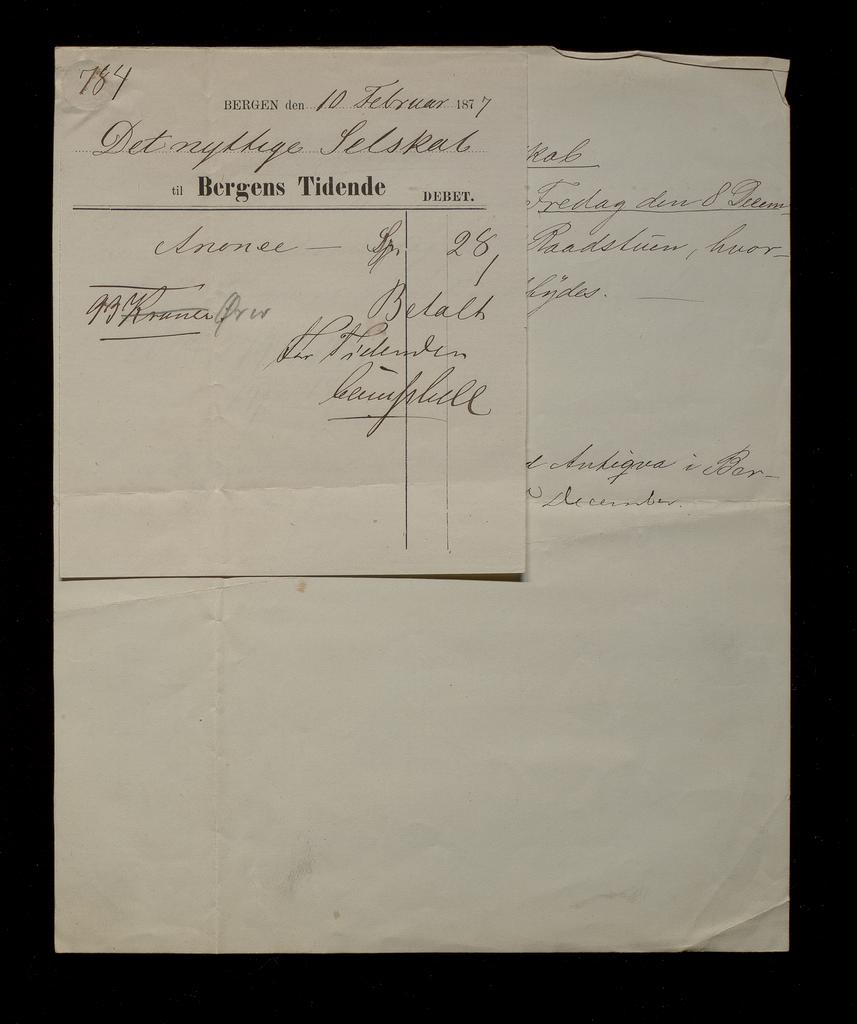 784
BERGEN den 10 Februar 1877
Det nyttige Selskab
til Bergens Tidende DEBET.
Anonce — 28,
Kroner Ører
Betalt
for Tidenden
Campbell
kab
Fredag den 8 Decem-
Raadstuen, hvor-
bydes. —
d Antiqva i Ber-
December.